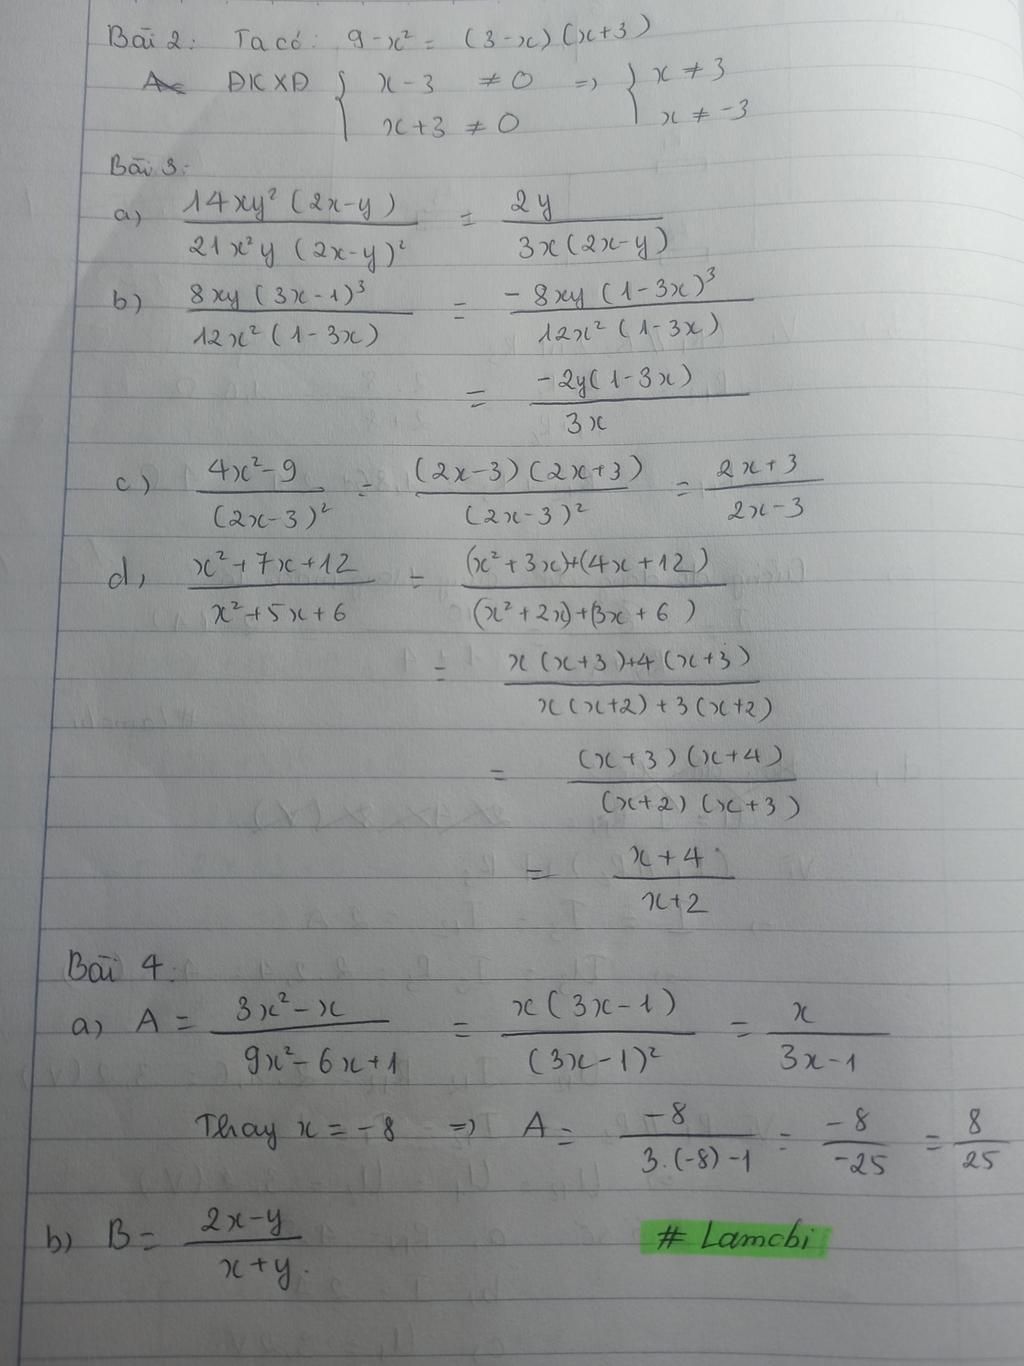 Bài 2: Ta có: 9-x² = (3-x)(x+3)
ĐKXĐ { x-3 ≠ 0 => { x ≠ 3
x+3 ≠ 0 x ≠ -3
Bài 3:
a) 14xy²(2x-y) / 21x²y(2x-y)² = 2y / 3x(2x-y)
b) 8xy(3x-1)³ / 12x²(1-3x) = -8xy(1-3x)³ / 12x²(1-3x)
= -2y(1-3x) / 3x
c) 4x²-9 / (2x-3)² = (2x-3)(2x+3) / (2x-3)² = 2x+3 / 2x-3
d, x²+7x+12 / x²+5x+6 = (x²+3x)+(4x+12) / (x²+2x)+(3x+6)
= x(x+3)+4(x+3) / x(x+2)+3(x+2)
= (x+3)(x+4) / (x+2)(x+3)
= x+4 / x+2
Bài 4:
a) A = 3x²-x / 9x²-6x+1 = x(3x-1) / (3x-1)² = x / 3x-1
Thay x = -8 => A = -8 / 3.(-8)-1 = -8 / -25 = 8 / 25
b) B = 2x-y / x+y. # Lamcbi